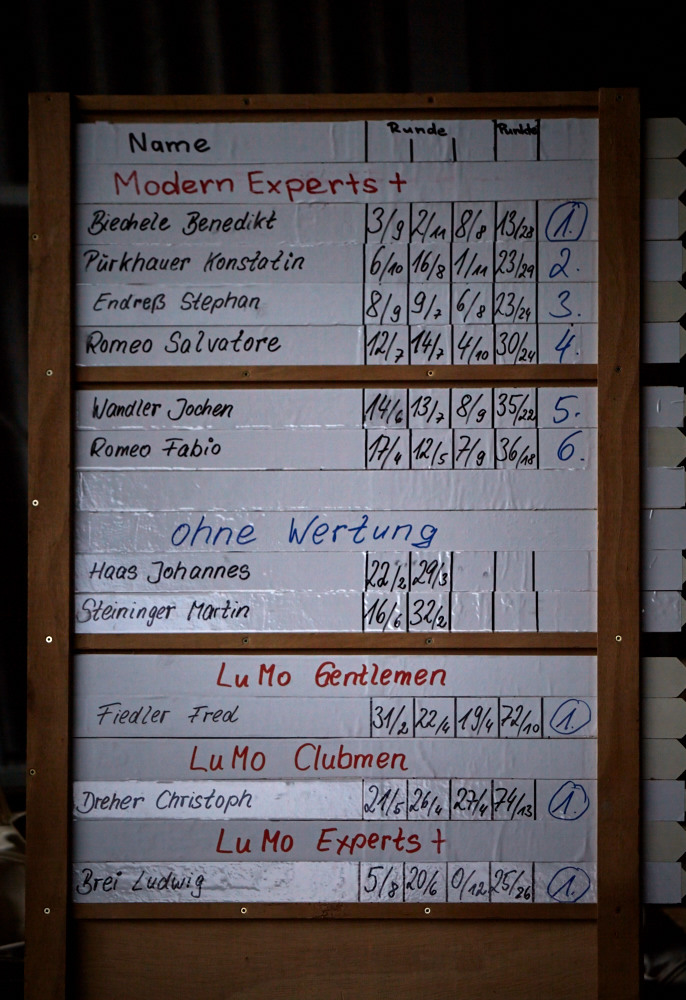 Name Runde Punkte
Modern Experts +
Biechele Benedikt 3/9 2/11 8/8 13/28 1.
Pürkhauer Konstatin 6/10 16/8 1/11 23/29 2.
Endreß Stephan 8/9 9/7 6/8 23/24 3.
Romeo Salvatore 12/7 14/7 4/10 30/24 4.
Wandler Jochen 14/6 13/7 8/9 35/22 5.
Romeo Fabio 17/4 12/5 7/9 36/18 6.
ohne Wertung
Haas Johannes 22/2 29/3
Steininger Martin 16/6 32/2
LuMo Gentlemen
Fiedler Fred 31/2 22/4 19/4 72/10 1.
LuMo Clubmen
Dreher Christoph 21/5 26/4 27/4 74/13 1.
LuMo Experts +
Brei Ludwig 5/8 20/6 0/12 25/26 1.